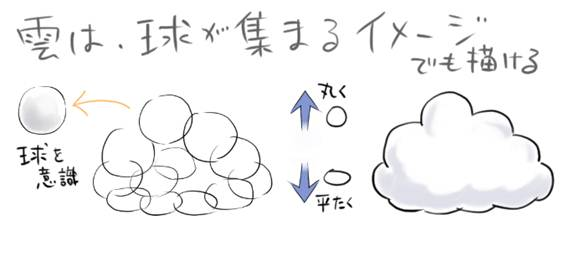 雲は、球が集まるイメージ
でも描ける
球を
意識
丸く
平たく